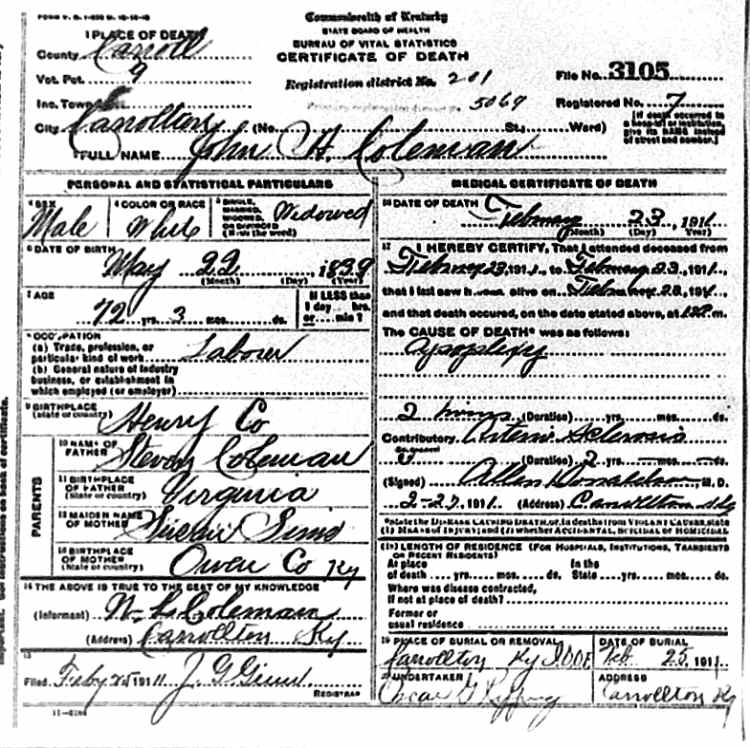 Commonwealth of Kentucky
STATE BOARD OF HEALTH
BUREAU OF VITAL STATISTICS
CERTIFICATE OF DEATH
1 PLACE OF DEATH
County Carroll
Vot. Pct. 9
Inc. Town
City Carrollton (No. St.; Ward)
Registration district No. 201
5069
File No. 3105
Registered No. 7
[If death occurred in a hospital or institution, give its NAME instead of street and number.]
FULL NAME John H. Coleman
PERSONAL AND STATISTICAL PARTICULARS
SEX Male
4 COLOR OR RACE White
5 SINGLE, MARRIED, WIDOWED, OR DIVORCED (Write the word) Widowed
6 DATE OF BIRTH May 22, 1839
(Month) (Day) (Year)
7 AGE 72 yrs. 3 mos. ds.
If LESS than 1 day hrs. or min?
OCCUPATION
(a) Trade, profession, or particular kind of work Laborer
(b) General nature of industry business, or establishment in which employed (or employer)
9 BIRTHPLACE (State or country) Henry Co
PARENTS
10 NAME OF FATHER Coleman
11 BIRTHPLACE OF FATHER (State or country) Virginia
MAIDEN NAME OF MOTHER Sims
BIRTHPLACE OF MOTHER (State or country) Owen Co Ky
14 THE ABOVE IS TRUE TO THE BEST OF MY KNOWLEDGE
(Informant) Coleman
(Address) Carrollton Ky
15
Filed 1911 J G
REGISTRAR
MEDICAL CERTIFICATE OF DEATH
16 DATE OF DEATH February 23 1911
(Month) (Day) (Year)
17 I HEREBY CERTIFY, That I attended deceased from
23, 1911, to February 23, 1911,
that I last saw h alive on 1911,
and that death occured, on the date stated above, at m.
The CAUSE OF DEATH* was as follows:
Apoplexy
2 (Duration) yrs. mos. ds.
Contributory
(Duration) 2
(Signed) Allen Donaldson M. D.
2-27, 1911 (Address) Carrollton Ky
*State the DISEASE CAUSING DEATH, or, in deaths from VIOLENT CAUSES, state (1) MEANS OF INJURY; and (2) whether ACCIDENTAL, SUICIDAL OR HOMICIDAL
LENGTH OF RESIDENCE (FOR HOSPITALS, INSTITUTIONS, TRANSIENTS OR RECENT RESIDENTS)
At place of death yrs. mos. ds. In the State yrs. mos. ds.
Where was disease contracted, if not at place of death?
Former or usual residence
19 PLACE OF BURIAL OR REMOVAL Carrollton Ky IOOF
DATE OF BURIAL Feb 25, 1911
UNDERTAKER Oscar G
ADDRESS Carrollton Ky